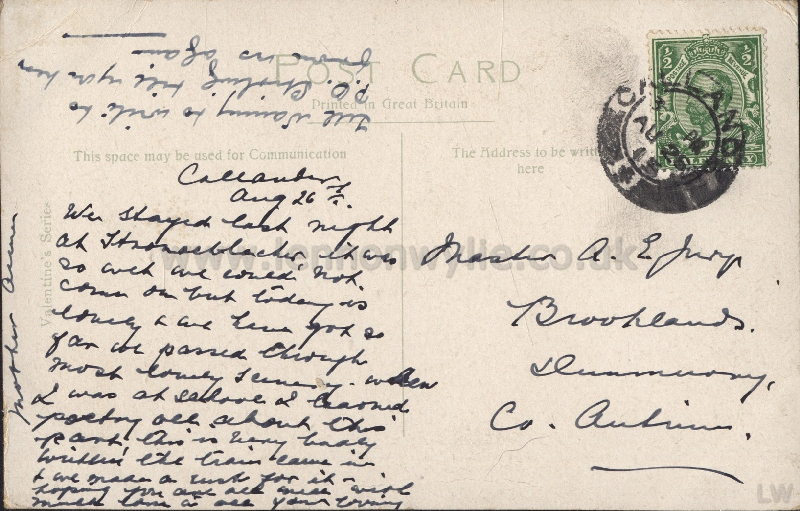 POST CARD
Printed in Great Britain
This space may be used for Communication
The Address to be writ
here
Valentine's Series
1/2 1/2
CALLANDER
AU 26
Callander
Aug 26
We stayed last night
at it was
so wet we could not
come on but today is
lovely & we have got so
far we passed through
most lovely scenery. when
I was at school I learned
poetry all about this
part this is very badly
written the train came in
& we made a rush for it -
hoping you are all well with
much love to all your loving
Mother
Tell Nanny to write to
P.O. Stirling till you hear
from us again
Master A. E. Jury
Brooklands.
Dunmurry,
Co. Antrim.
www.lennonwylie.co.uk
LW